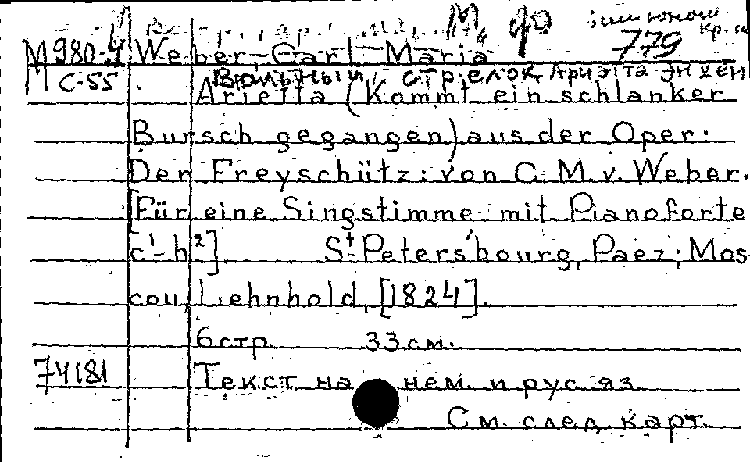 М, ф 779
М980-4 Weber, Carl Maria
М С-55 Вольный стрелок, Ариэтта Энхен
Arietta (Kommt ein schlanker
Bursch gegangen) aus der Oper:
Der Freyschütz: von C. M. v. Weber.
[Für eine Singstimme mit Pianoforte
c¹-h²] St Petersbourg, Paez; Mos
cou, Lehnhold, [1824].
6 стр. 33 см.
74181 Текст на нем. и рус. яз.
См. след. карт.